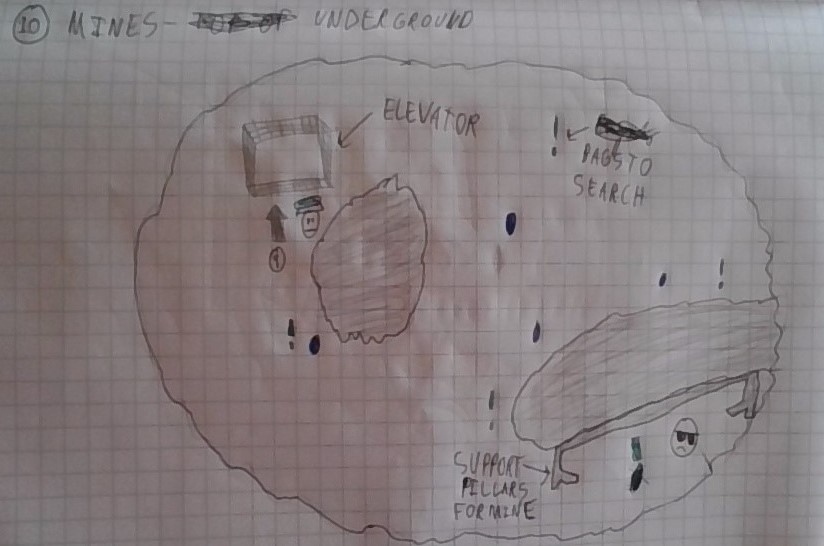 10 MINES- UNDERGROUND
ELEVATOR
!
BAGS TO
SEARCH
!
!
!
SUPPORT
PILLARS
FOR MINE